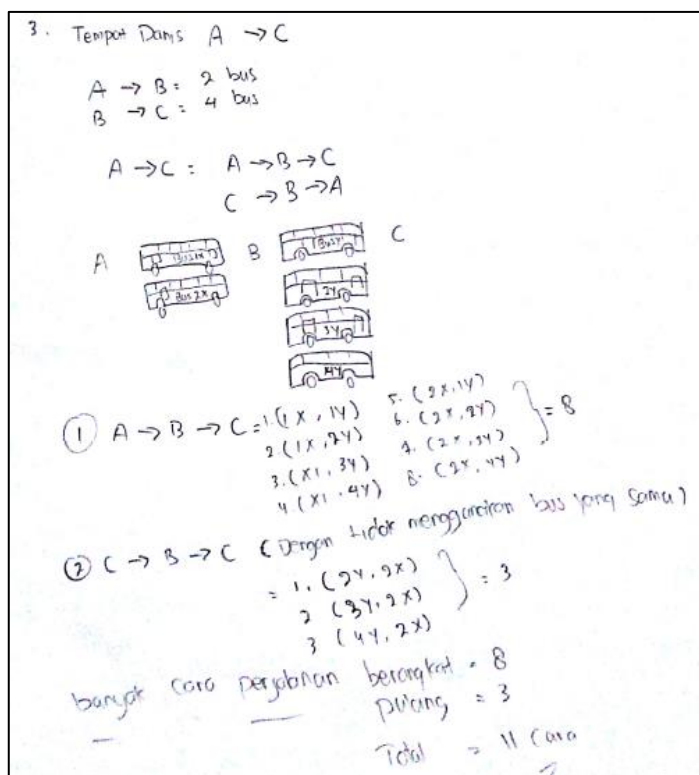 3. Tempat Dams A → C
A → B = 2 bus
B → C = 4 bus
A → C = A → B → C
C → B → A
A B C
Bus 1X
Bus 2X
Bus 1Y
2Y
3Y
4Y
① A → B → C = 1. (1X, 1Y) 5. (2X, 1Y)
2. (1X, 2Y) 6. (2X, 2Y) } = 8
3. (X1, 3Y) 7. (2X, 3Y)
4. (X1, 4Y) 8. (2X, 4Y)
② C → B → C (Dengan tidak menggunakan bus yang sama)
= 1. (2Y, 2X)
2 (3Y, 2X) } = 3
3 (4Y, 2X)
banyak cara perjalanan berangkat = 8
pulang = 3
Total = 11 Cara